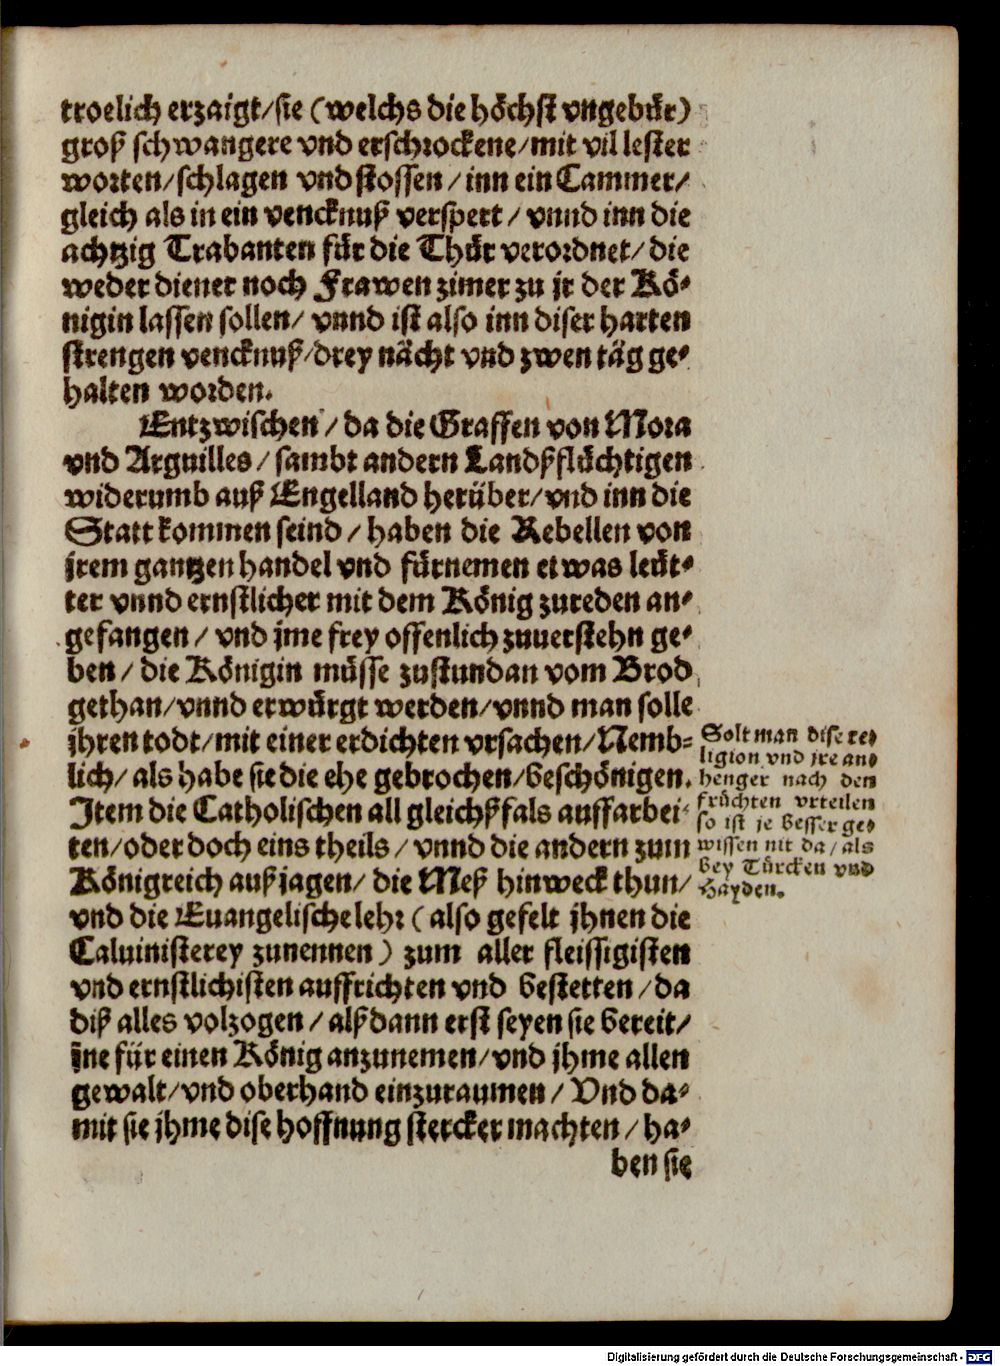 troelich erzaigt/sie (welchs die höchst vngebür)
groß schwangere vnd erschrockene/mit vil lester
worten/schlagen vnd stossen / inn ein Cammer/
gleich als in ein vencknuß verspert / vnnd inn die
achtzig Trabanten für die Thür verordnet/ die
weder diener noch Frawen zimer zu jr der Kö-
nigin lassen sollen/ vnnd ist also inn diser harten
strengen vencknuß/drey nächt vnd zwen täg ge-
halten worden.
Entzwischen / da die Graffen von Mora
vnd Arguilles / sambt andern Landßflüchtigen
widerumb auß Engelland herüber/vnd inn die
Statt kommen seind / haben die Rebellen von
jrem gantzen handel vnd fürnemen etwas leüt-
ter vnnd ernstlicher mit dem König zureden an-
gefangen / vnd jme frey offenlich zuuerstehn ge-
ben / die Königin müsse zustundan vom Brod
gethan/vnnd erwürgt werden/vnnd man solle
jhren todt/mit einer erdichten vrsachen/Nemb-
lich/ als habe sie die ehe gebrochen/beschönigen.
Item die Catholischen all gleichßfals auffarbei-
ten/oder doch eins theils / vnnd die andern zum
Königreich außjagen/ die Meß hinweck thun/
vnd die Euangelische lehr ( also gefelt jhnen die
Caluinisterey zunennen ) zum aller fleissigisten
vnd ernstlichisten auffrichten vnd bestetten / da
diß alles volzogen / alßdann erst seyen sie bereit/
jne für einen König anzunemen/vnd jhme allen
gewalt/vnd oberhand einzuraumen / Vnd da-
mit sie jhme dise hoffnung stercker machten / ha-
ben sie
Solt man dise re-
ligion vnd jre an-
henger nach den
früchten vrteilen
so ist je besser ge-
wissen nit da/ als
bey Türcken vnd
Hayden.
Digitalisierung gefördert durch die Deutsche Forschungsgemeinschaft - DFG